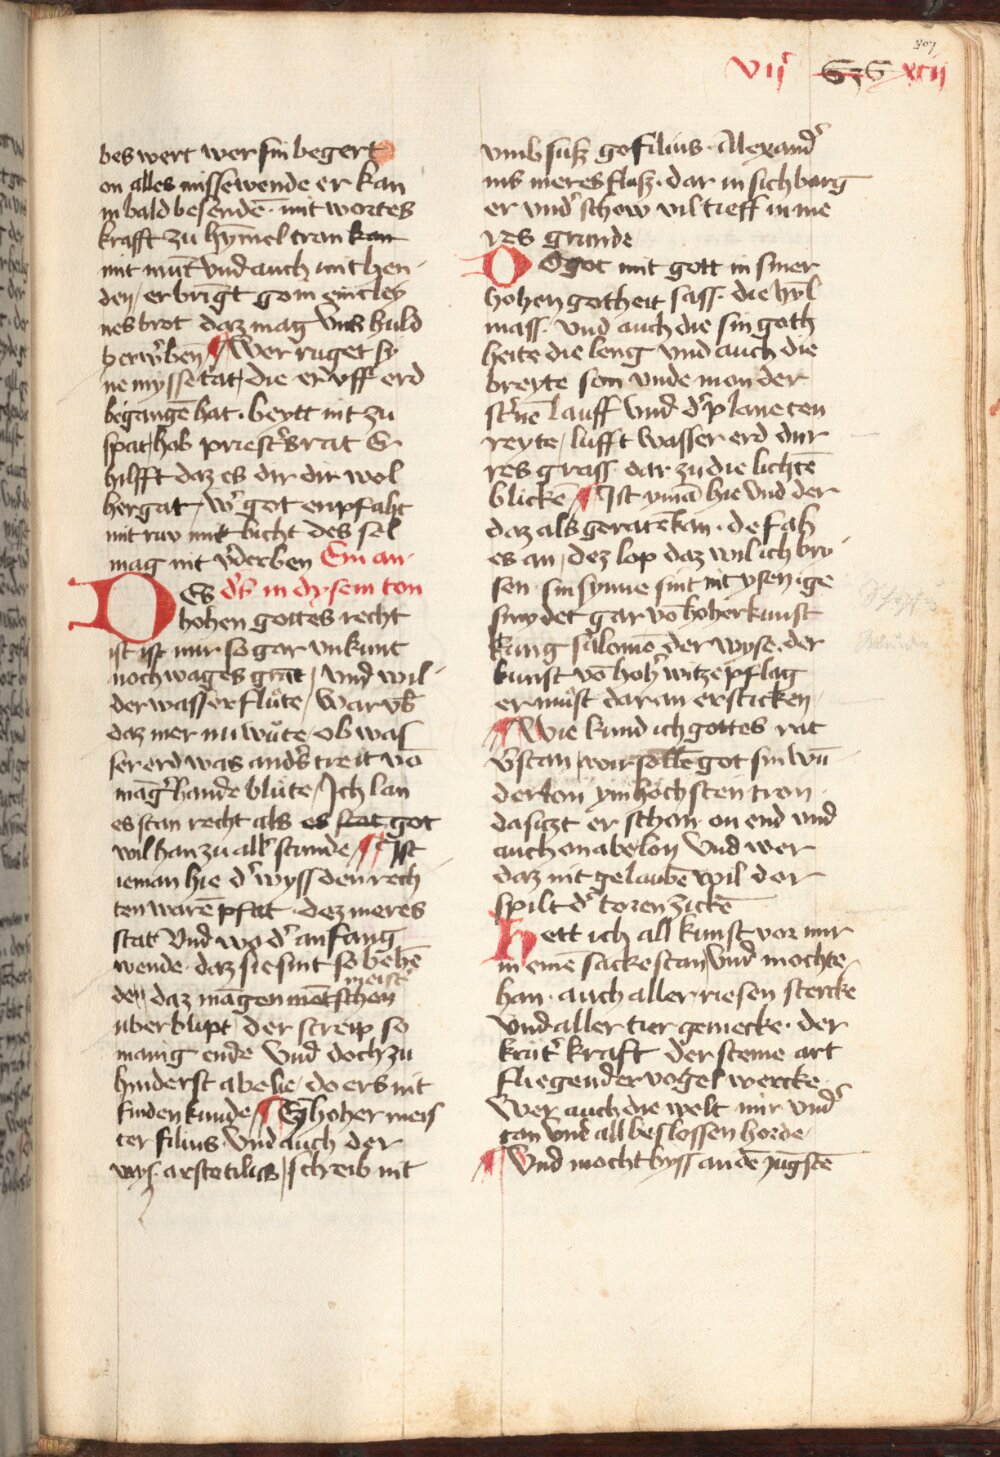 807
VII xcii
bes wert wer sin begert
on alles missewende er kan
in bald besendē · mit wortes
krafft zu hymel tran kan
mit mut vnd auch mit hen
den / er bringt gom ein cley
nes brot daz mag vns huld
erwerbē ¶ Wer ruget sy
ne myssetat / die er vff erd
begangē hat · beytt nit zu
spat / hab priesters rat Er
hilfft daz es dir dir wol
hergat / wer got enpfaht
mit ruv mit bicht des sel
mag nit verderben Ein an
Es ders in dysem ton
hohen gottes recht
ist ist mir so gar vnkunt
noch wages grūt / vnd wil
der wasser flůte / war vmb
daz mer nu wůte · ob was
ser erd was anders treit vō
manger hande blüte / Ich lan
es stan recht als es stat got
wil han zu aller stunde ¶ Ist
ieman hie der wyss den rech
ten warē pfat · dez meres
stat vnd wo der anfang
wende · daz sie sint so behē
meister
den daz mangen mentschen
uberblipt / der streip so
manig ende vnd doch zu
hinderst abelie / do ers nit
finden kunde ¶ Ey hoher meis
ter filius vnd auch der
wys · arstotiliss / schreib nit
vmb susz gofilius · Alexander
ins meres flusz · dar in sich barg
er vnd schow vil tieff in me
res grunde
DO got mit gott in siner
hohen gotheit sass · die hyl
mass · vnd auch die sin goth
heite die leng vnd auch die
breyte son vnde mon der
sternē lauff vnd der planeten
reyte / lufft wasser erd dur
res grass · dar zu die lichtē
blickē ¶ Ist yman hie vnd der
daz als geratē kan · de fah
es an / dez lop daz wil ich bry
sen · sin synne sint mit ysen ge
smydet gar vō hoher kunst
kung salomō der wyse · der
kunst vō hoher witze pflag
er můst dar an ersticken
¶ Wie kund ich gottes rat
verstan / war sollē got sin wū
der kon ym höchsten tron
da sitzt er schon · on end vnd
auch on abelon vnd wer
daz nit gelaubē wil der
spilt der toren zickē
Hett ich all kunst vor mir
in einē sacke stan vnd mochte
han · auch aller riesen stercke
vnd aller tier gemecke · der
krüter kraft der steine art
fliegender vogel wercke
Wer auch die welt mir vnder
tan vnd all beslossen horde
¶ Vnd mocht byss an dē jungstē